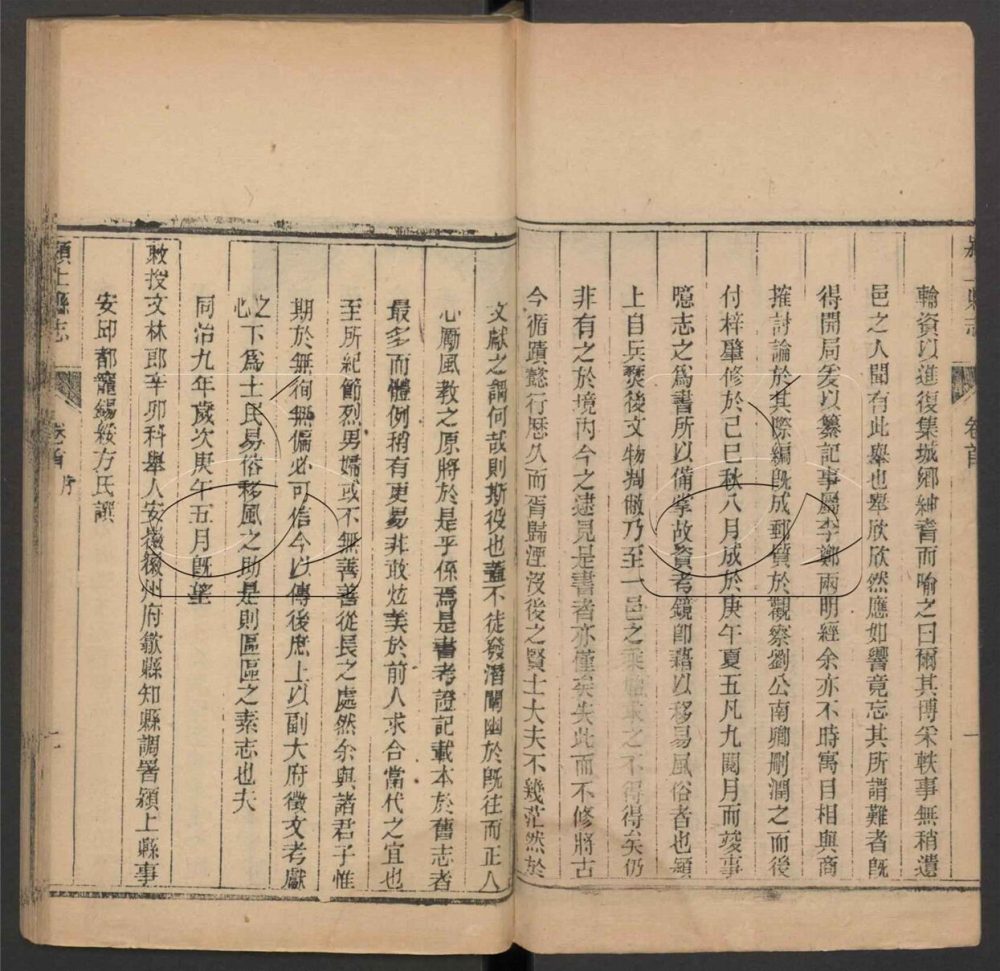 輸資以進復集城鄉紳耆而喻之曰爾其博采軼事無稍遺
邑之人聞有此舉也羣欣欣然應如響竟忘其所謂難者既
得開局爰以纂記事屬李鄭兩明經余亦不時寓目相與商
搉討論於其際編既成郵質於觀察劉公南卿刪潤之而後
付梓肇修於己巳秋八月成於庚午夏五凡九閱月而竣事
噫志之為書所以備掌故資考鏡卽藉以移易風俗者也潁
上自兵燹後文物凋傲乃至一邑之乘求之不得得矣仍
非有之於境內今之逮見是書者亦僅矣失此而不修將古
今循蹟懿行歷久而胥歸湮沒後之賢士大夫不幾茫然於
潁上縣志
卷首
文獻之謂何哉則斯役也蓋不徒發潛闡幽於既往而正人
心勵風教之原將於是乎係焉是書考證記載本於舊志者
最多而體例稍有更易非敢炫美於前人求合當代之宜也
至所紀節烈男婦或不無善善從長之處然余與諸君子惟
期於無徇無偏必可信今以傳後庶上以副大府徵文考獻
之心下為士民易俗移風之助是則區區之素志也夫
同治九年歲次庚午五月既望
敕授文林郎辛卯科舉人安徽徽州府歙縣知縣調署潁上縣事
安邱都寵錫綏方氏譔
潁上縣志
卷首 序
一